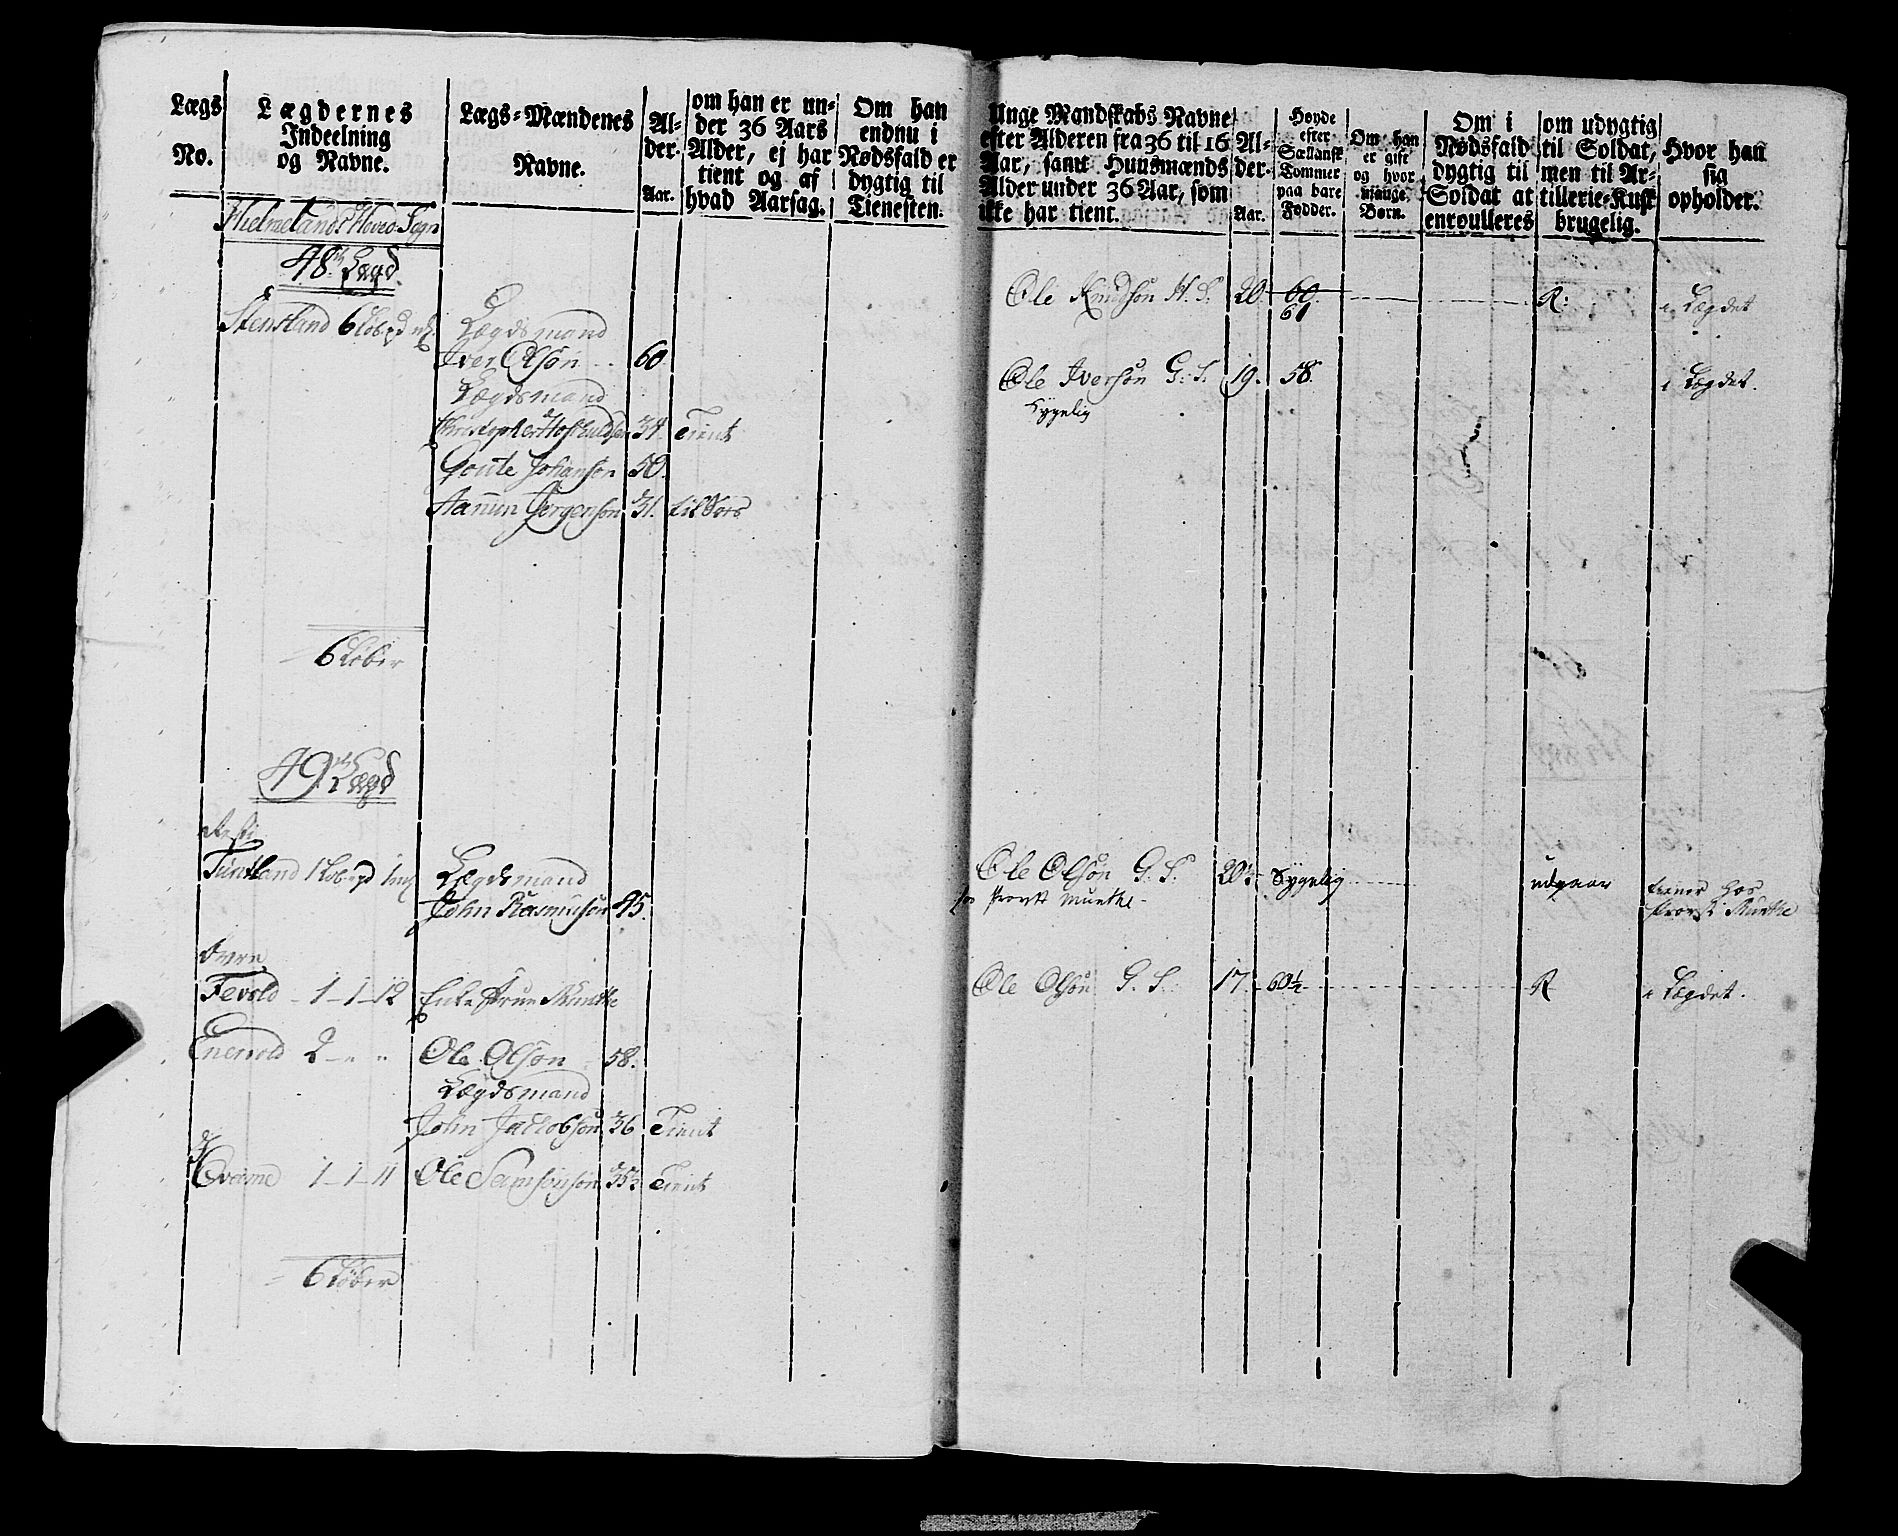 Lægs
No.
Lægdernes
Indeelning
og Navne.
Lægs-Mændenes
Navne.
Al-
der.
Aar.
om han er un-
der 36 Aars
Alder, ej har
tient og af
hvad Aarsag.
Om han
endnu i
Nødsfald er
dygtig til
Tienesten.
Unge Mandskabs Navne
efter Alderen fra 36 til 16
Aar, samt Huusmænds
Alder under 36 Aar, som
ikke har tient.
Al-
der.
Aar.
Høyde
efter
Sællansk
Tommer
paa bare
Fødder.
Om han
er gift
og hvor
mange
Børn.
Om i
Nødsfald
dygtig til
Soldat at
enroulleres
om udygtig
til Soldat,
men til Ar-
tillerie-Kusk
brugelig.
Hvor han
sig
opholder.
Hielmelands Hoved-Sogn
48de Lægd
Stensland 6
Lægdsmand
Iver Olsøn 60.
Lægdsmand
34. Tient
Goute Johansøn 50.
Aanun Jørgensøn 31. til Sors
6 Løber
Ole Knudsøn H. S. 20. 60 R: i Lægdet
61
Ole Iversøn G: S. 19. 58. i Lægdet.
Sygelig
49de Lægd
Lægdsmand
John Rasmusøn 45.
Fevold - 1-1-12 Enke Frue Munthe
Enevold 2 - " " Ole Olsøn 58.
Lægdsmand
John Jacobsøn 36. Tient
1-1-11 Ole Samsonsøn 35½ Tient
6 Løber
Ole Olsøn G: S: 20½ Sygelig udgaar tiener hos
Provst Munthe
Provst Munthe.
Ole Olsøn G. S. 17. 60½ R i Lægdet.